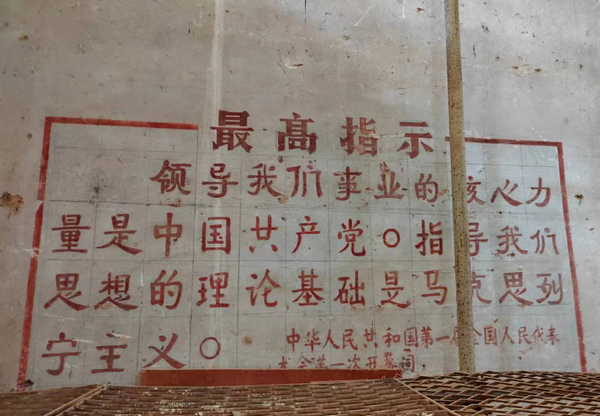 最高指示
领导我们事业的核心力
量是中国共产党。指导我们
思想的理论基础是马克思列
宁主义。
中华人民共和国第一届全国人民代表
大会第一次开幕词